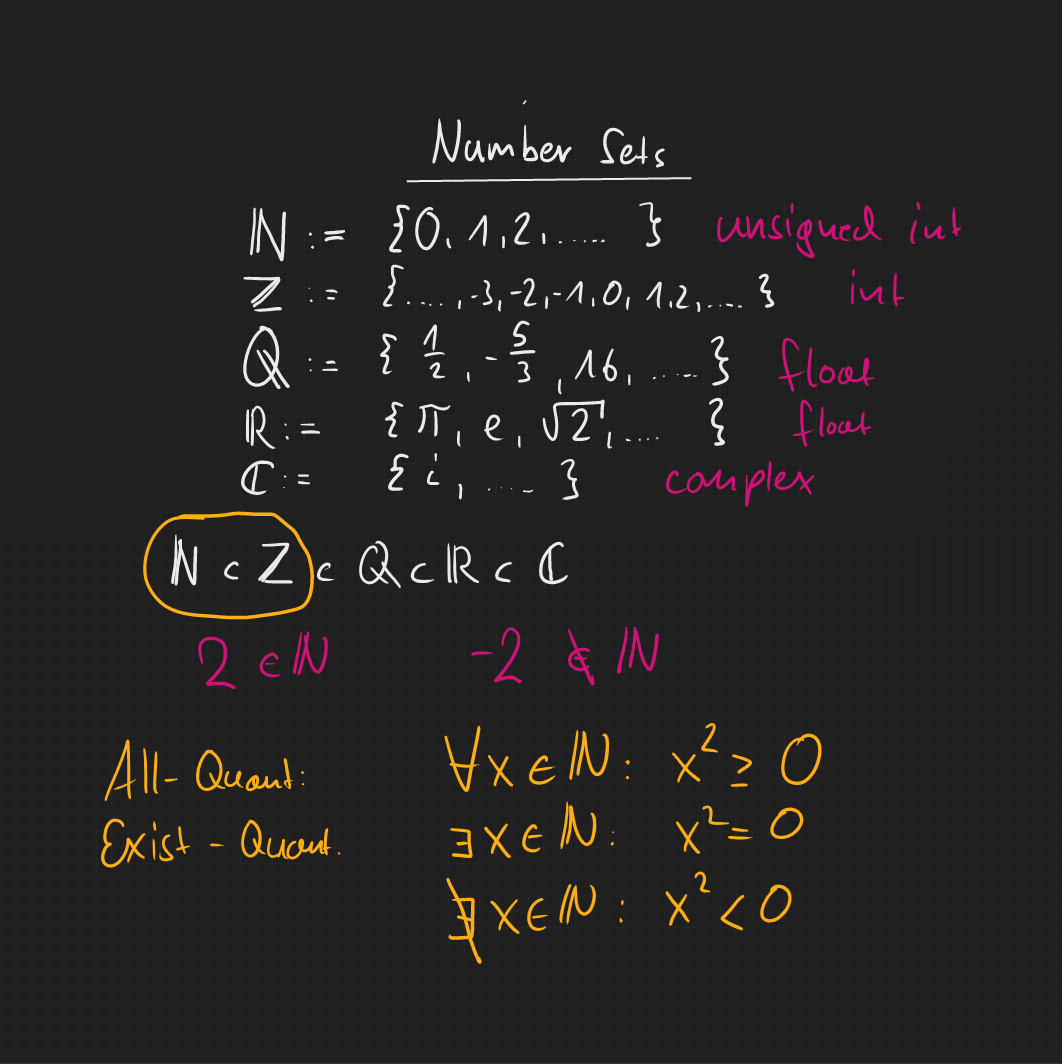 Number Sets
ℕ := {0, 1, 2, ..... } unsigned int
ℤ := {...., -3, -2, -1, 0, 1, 2, .... } int
ℚ := { 1/2, -5/3, 16, ..... } float
ℝ := { π, e, √2, .... } float
ℂ := { i, .... } complex
ℕ ⊂ ℤ ⊂ ℚ ⊂ ℝ ⊂ ℂ
2 ∈ ℕ -2 ∉ ℕ
All-Quant: ∀x ∈ ℕ: x² ≥ 0
Exist-Quant. ∃x ∈ ℕ: x² = 0
∄x ∈ ℕ: x² < 0